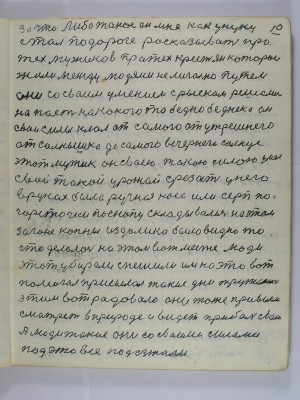 за что либо такое он мне как учику 10
стал подороге росказывать про
тех мужиков про тех крестян которы
жили между людями не личыно путем
они со своим умением с рыском решили
на
свои силы клал от самого от утрешнего
от солнышка до самого вечернего солнце
этот мужик он своею такою силою убрал
свой такой урожай срезат у него
в руках была ручная коса или серп по
горсточки по снопу складывался на том
загоне копны издолика было видно то
что делалос на этом вот месте люди
этот убирали спешили им на это вот
помогал пришлос такие дни
этим вот радовало они тоже привыкли
смотрет в природе и видет прибыл свои
А люди такие они со своими силами
под это все подезжали